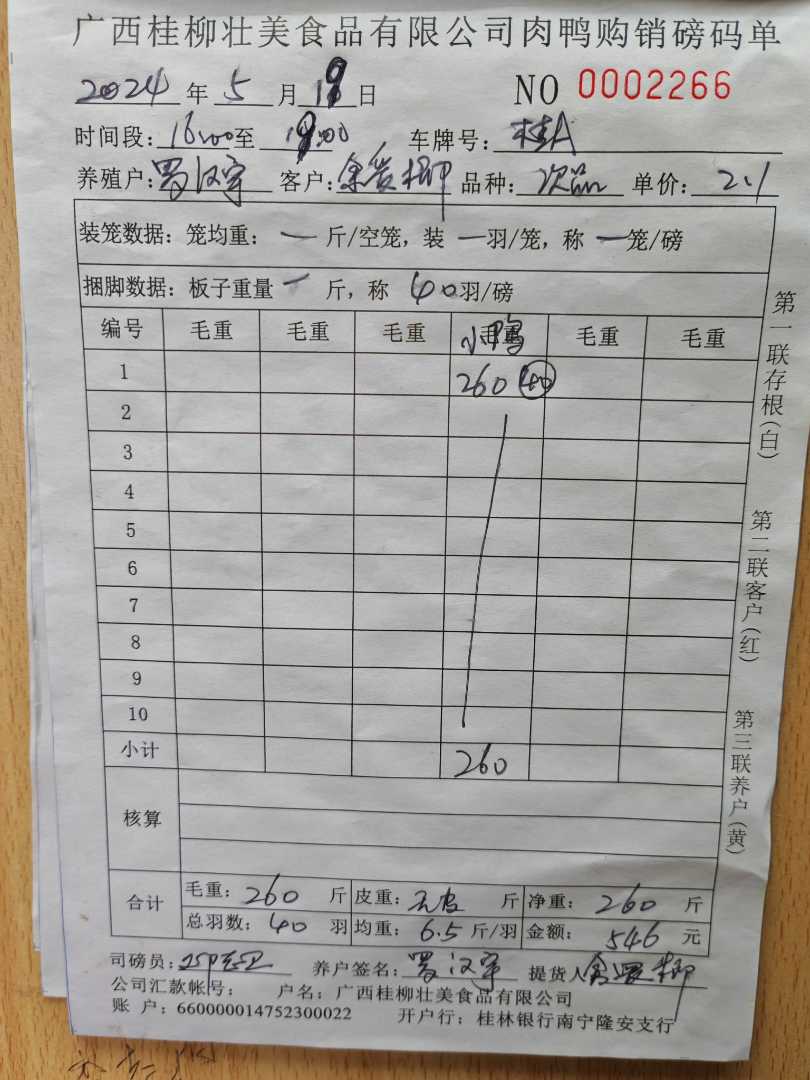 广西桂柳壮美食品有限公司肉鸭购销磅码单
2024年5月19日 NO 0002266
时间段:16:00至19:00 车牌号:桂A
养殖户:罗汉宇 客户: 品种:次品 单价:2.1
装笼数据:笼均重:一斤/空笼,装一羽/笼,称一笼/磅
捆脚数据:板子重量一斤,称40羽/磅
编号 毛重 毛重 毛重 小鸭 毛重 毛重
1 260 40
2
3
4
5
6
7
8
9
10
小计 260
核算
合计 毛重:260斤 皮重:无皮斤 净重:260斤
总羽数:40羽 均重:6.5斤/羽 金额:546元
司磅员: 养户签名:罗汉宇 提货人
公司汇款帐号: 户名:广西桂柳壮美食品有限公司
账户:660000014752300022 开户行:桂林银行南宁隆安支行
第一联存根(白)
第二联客户(红)
第三联养户(黄)